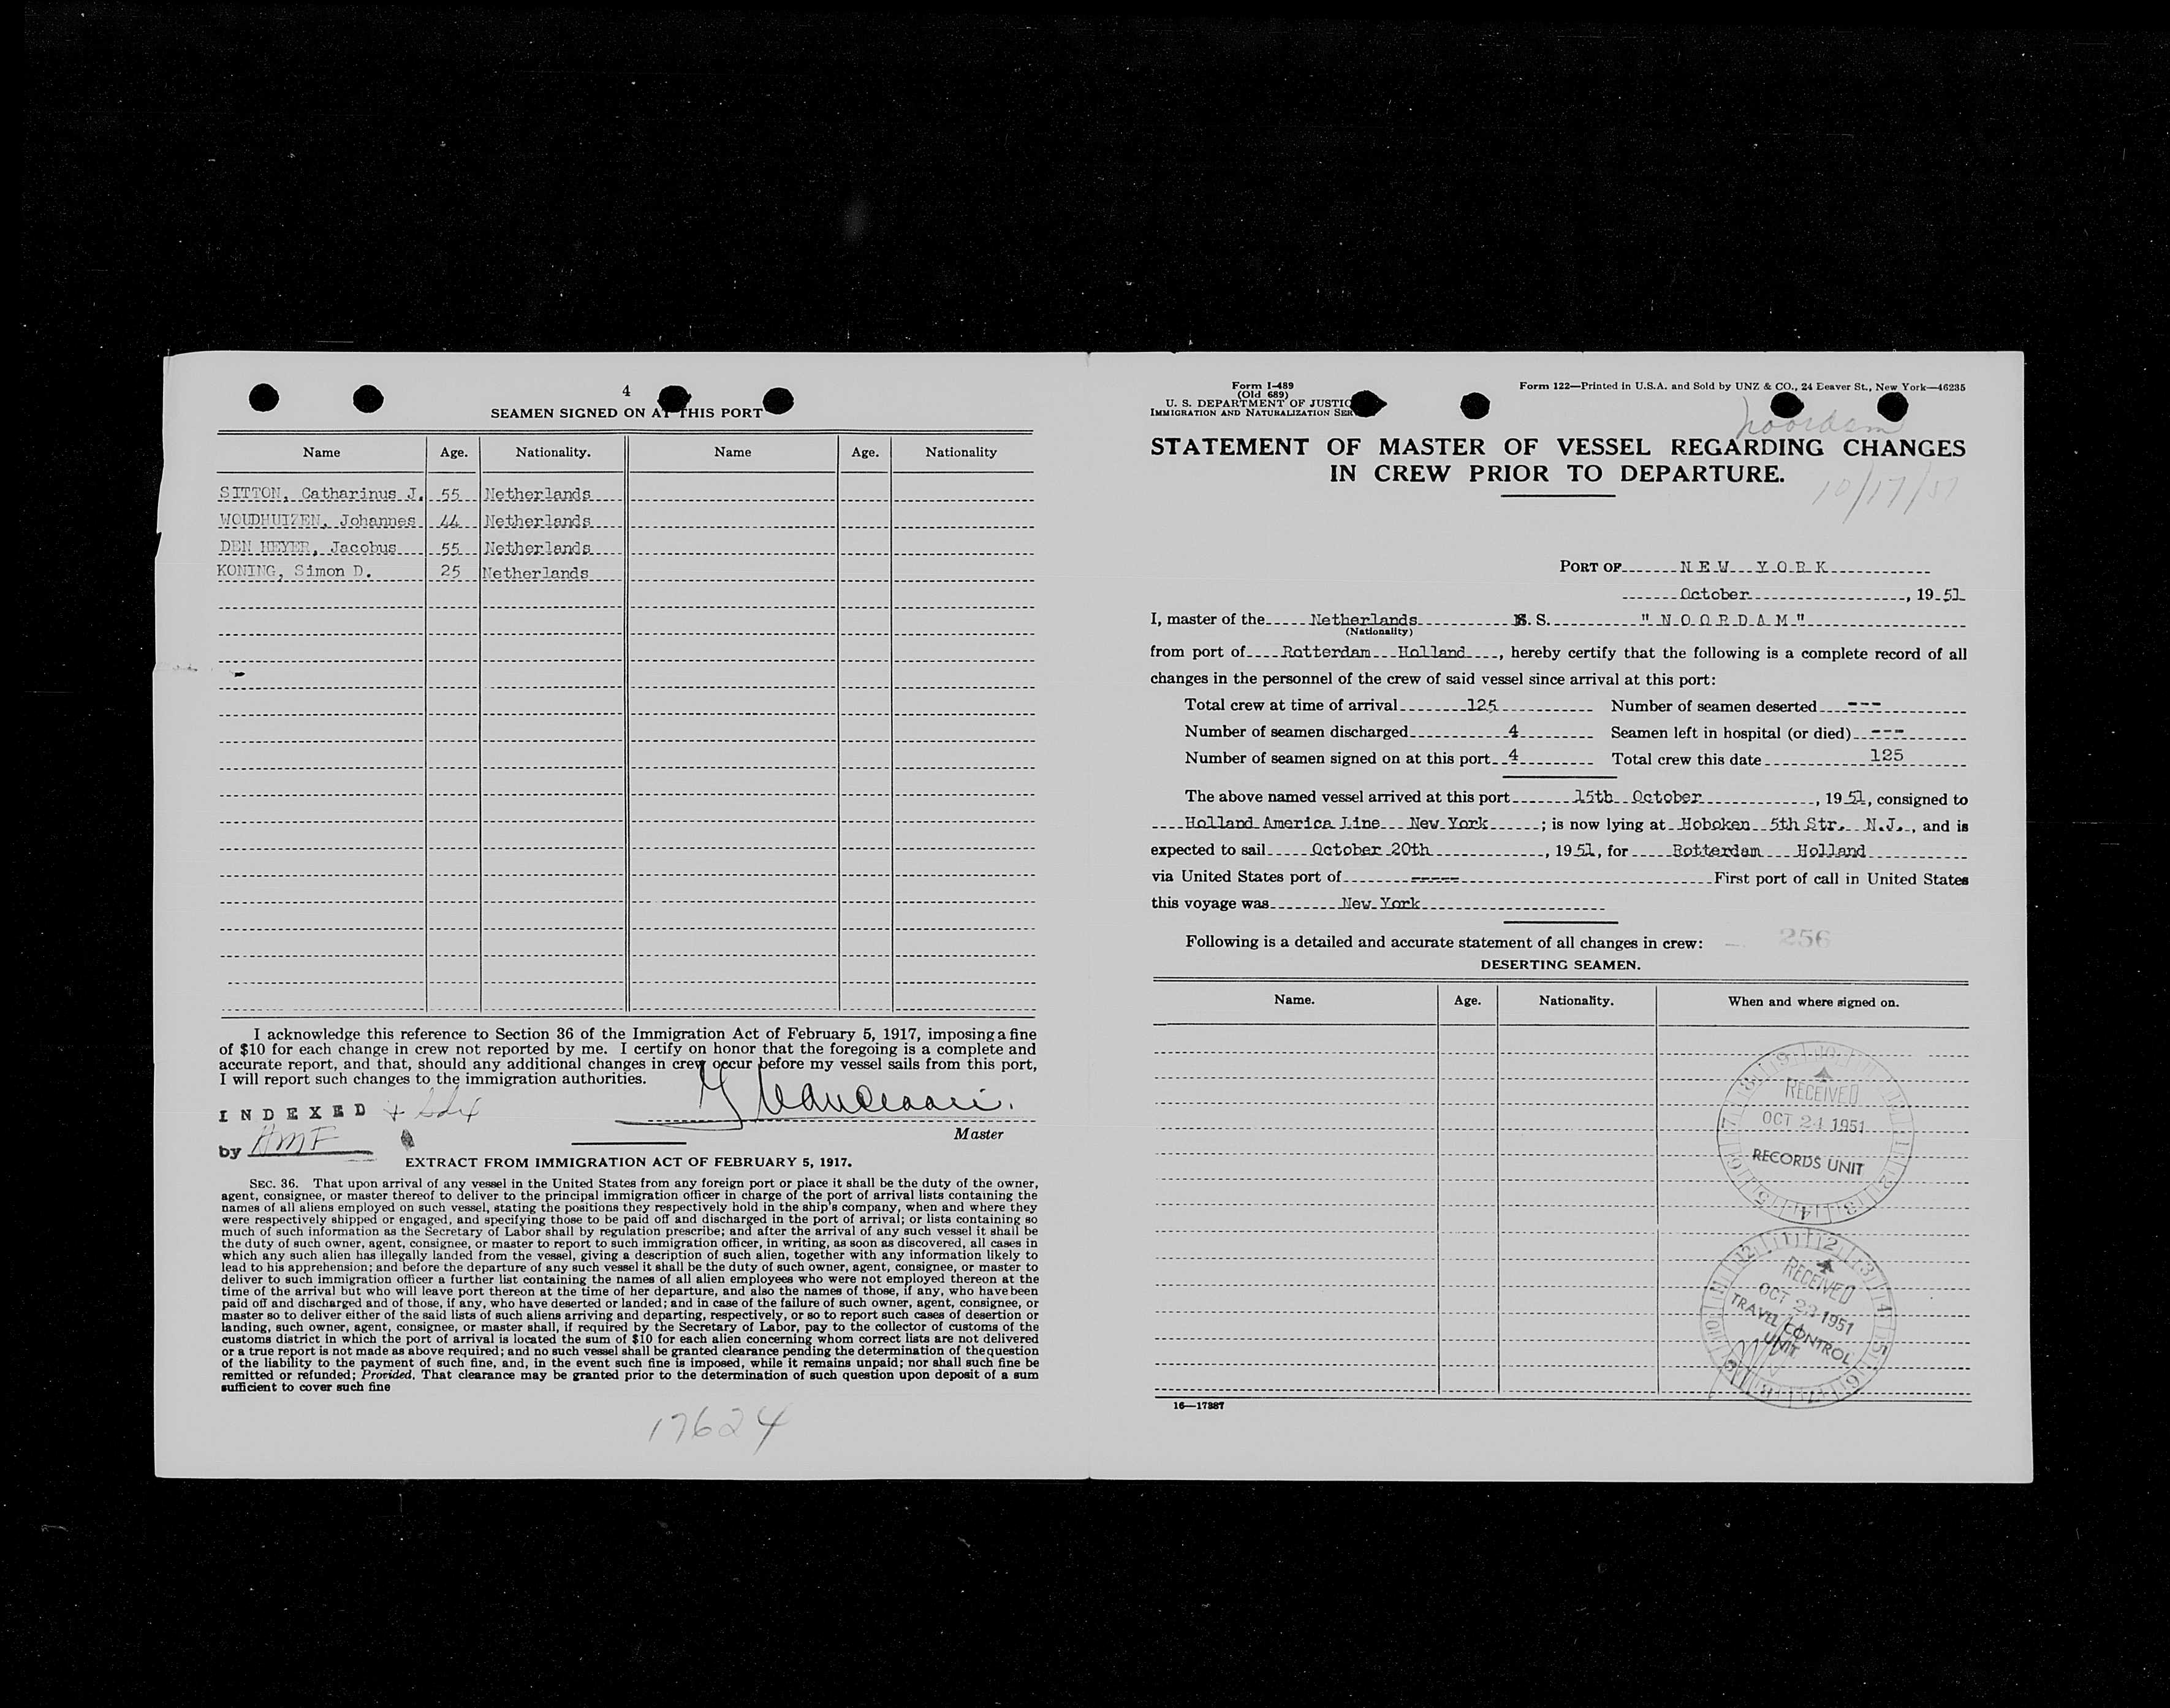 4
SEAMEN SIGNED ON AT THIS PORT
Name Age. Nationality. Name Age. Nationality
SITTON, Catharinus J. 55 Netherlands
WOUDHUIZEN, Johannes 44 Netherlands
DEN HEYER, Jacobus 55 Netherlands
KONING, Simon D. 25 Netherlands
I acknowledge this reference to Section 36 of the Immigration Act of February 5, 1917, imposing a fine
of $10 for each change in crew not reported by me. I certify on honor that the foregoing is a complete and
accurate report, and that, should any additional changes in crew occur before my vessel sails from this port,
I will report such changes to the immigration authorities.
INDEXED
by AMF
Master
EXTRACT FROM IMMIGRATION ACT OF FEBRUARY 5, 1917.
SEC. 36. That upon arrival of any vessel in the United States from any foreign port or place it shall be the duty of the owner,
agent, consignee, or master thereof to deliver to the principal immigration officer in charge of the port of arrival lists containing the
names of all aliens employed on such vessel, stating the positions they respectively hold in the ship's company, when and where they
were respectively shipped or engaged, and specifying those to be paid off and discharged in the port of arrival; or lists containing so
much of such information as the Secretary of Labor shall by regulation prescribe; and after the arrival of any such vessel it shall be
the duty of such owner, agent, consignee, or master to report to such immigration officer, in writing, as soon as discovered, all cases in
which any such alien has illegally landed from the vessel, giving a description of such alien, together with any information likely to
lead to his apprehension; and before the departure of any such vessel it shall be the duty of such owner, agent, consignee, or master to
deliver to such immigration officer a further list containing the names of all alien employees who were not employed thereon at the
time of the arrival but who will leave port thereon at the time of her departure, and also the names of those, if any, who have been
paid off and discharged and of those, if any, who have deserted or landed; and in case of the failure of such owner, agent, consignee, or
master so to deliver either of the said lists of such aliens arriving and departing, respectively, or so to report such cases of desertion or
landing, such owner, agent, consignee, or master shall, if required by the Secretary of Labor, pay to the collector of customs of the
customs district in which the port of arrival is located the sum of $10 for each alien concerning whom correct lists are not delivered
or a true report is not made as above required; and no such vessel shall be granted clearance pending the determination of the question
of the liability to the payment of such fine, and, in the event such fine is imposed, while it remains unpaid; nor shall such fine be
remitted or refunded; Provided, That clearance may be granted prior to the determination of such question upon deposit of a sum
sufficient to cover such fine
17624
Form I-489
(Old 689)
U. S. DEPARTMENT OF JUSTIC
IMMIGRATION AND NATURALIZATION SER
Form 122—Printed in U.S.A. and Sold by UNZ & CO., 24 Beaver St., New York—46235
Noordam
STATEMENT OF MASTER OF VESSEL REGARDING CHANGES
IN CREW PRIOR TO DEPARTURE.
10/17/51
PORT OF NEW YORK
October, 1951
I, master of the Netherlands S.S. "NOORDAM"
(Nationality)
from port of Rotterdam Holland, hereby certify that the following is a complete record of all
changes in the personnel of the crew of said vessel since arrival at this port:
Total crew at time of arrival 125 Number of seamen deserted ---
Number of seamen discharged 4 Seamen left in hospital (or died) ---
Number of seamen signed on at this port 4 Total crew this date 125
The above named vessel arrived at this port 15th October, 1951, consigned to
Holland America Line New York; is now lying at Hoboken 5th Str. N.J., and is
expected to sail October 20th, 1951, for Rotterdam Holland
via United States port of ----- First port of call in United States
this voyage was New York
Following is a detailed and accurate statement of all changes in crew: 256
DESERTING SEAMEN.
Name. Age. Nationality. When and where signed on.
RECEIVED
OCT 24 1951
RECORDS UNIT
RECEIVED
OCT 23 1951
TRAVEL CONTROL
UNIT
16—17387